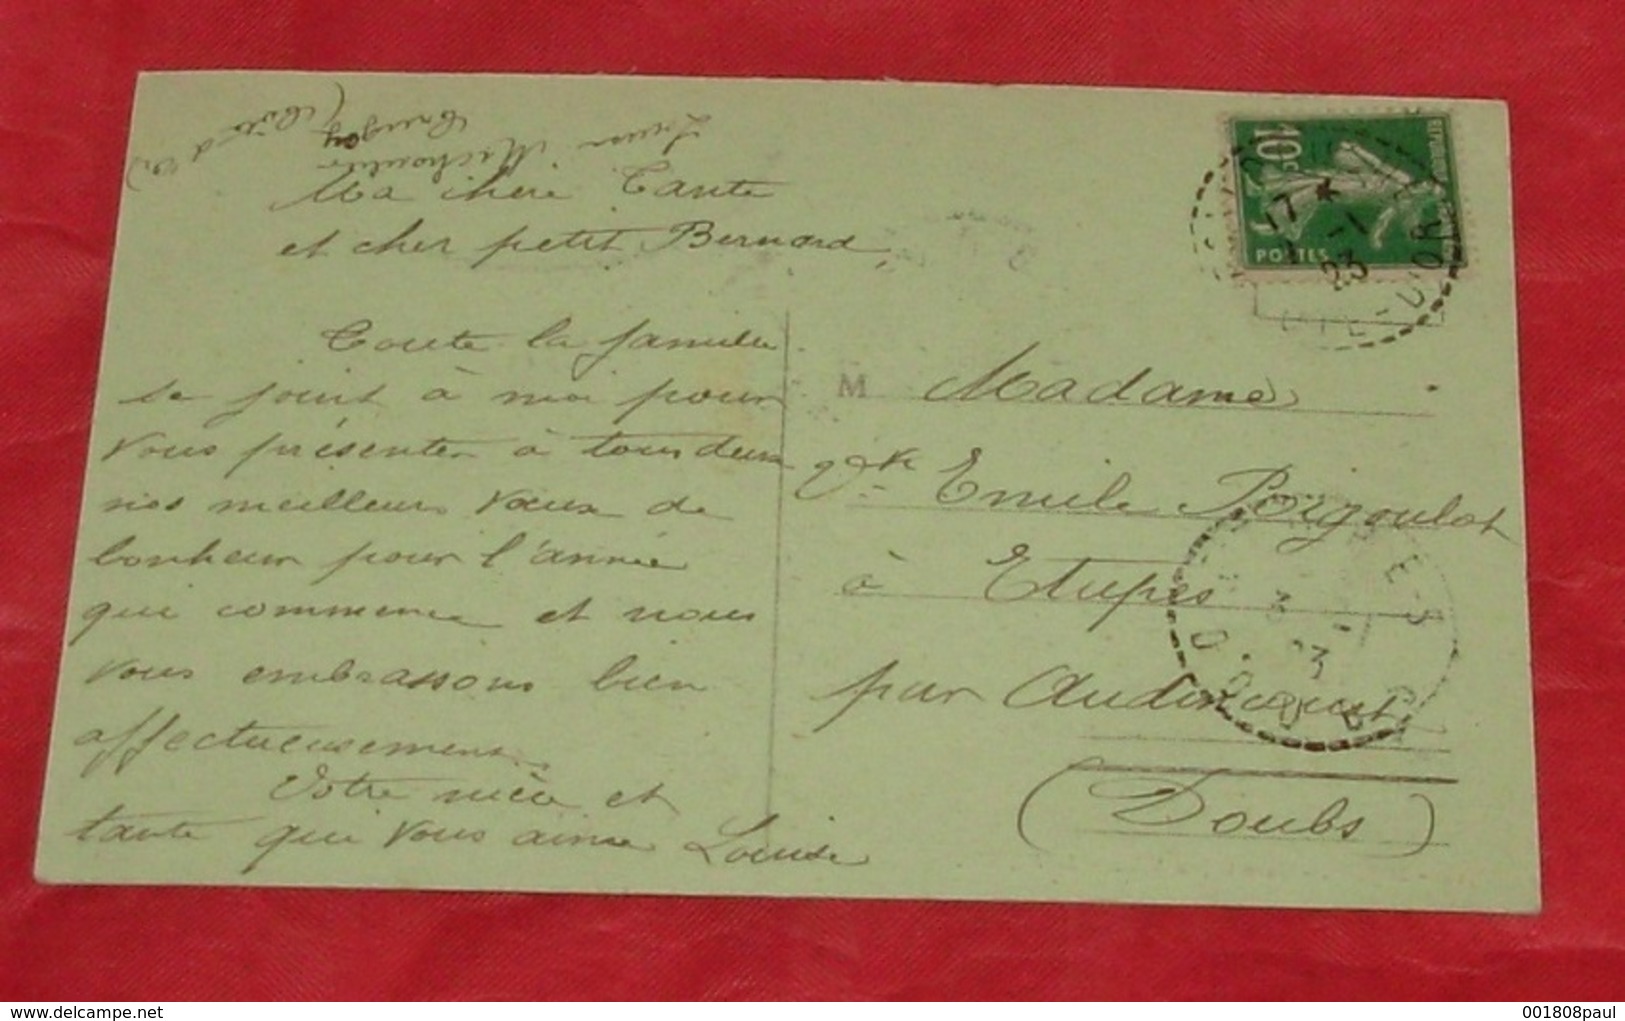 Ma chère Tante
et cher petit Bernard,
Toute la famille
se joint à moi pour
vous présenter à tous deux
nos meilleurs vœux de
bonheur pour l'année
qui commence et nous
vous embrassons bien
affectueusement
Votre nièce et
tante qui vous aime Louise
10c
POSTES
17 *
-1
23
M Madame
Vve Emile Poigoulot
à Etupes
par Audincourt
(Doubs)
www.delcampe.net
001808paul